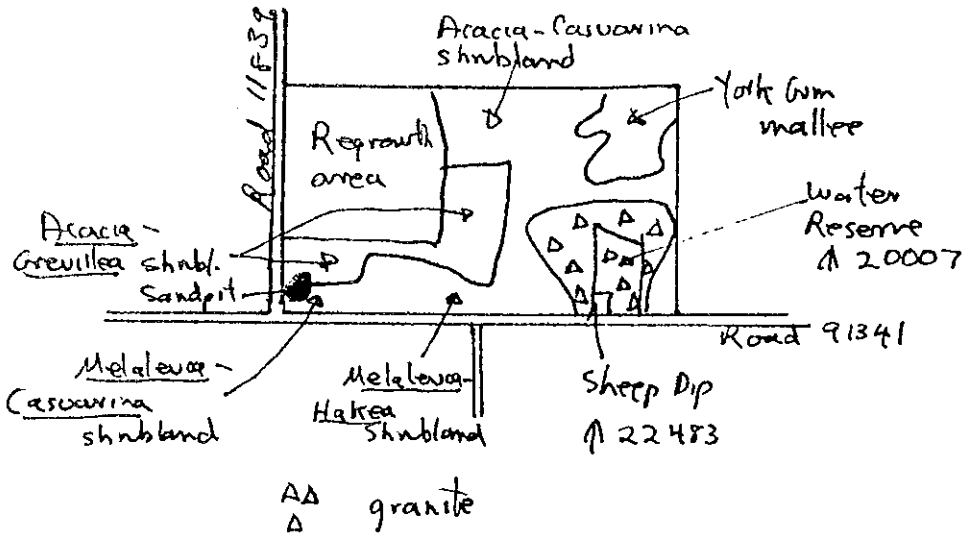 Road 11839
Acacia-Casuarina
shrubland
York Gum
mallee
Regrowth
area
Water
Reserve
↑ 20007
Acacia-
Grevillea shrubl.
Sandpit
Road 91341
Melaleuca-
Casuarina
shrubland
Melaleuca-
Hakea
Shrubland
Sheep Dip
↑ 22483
granite